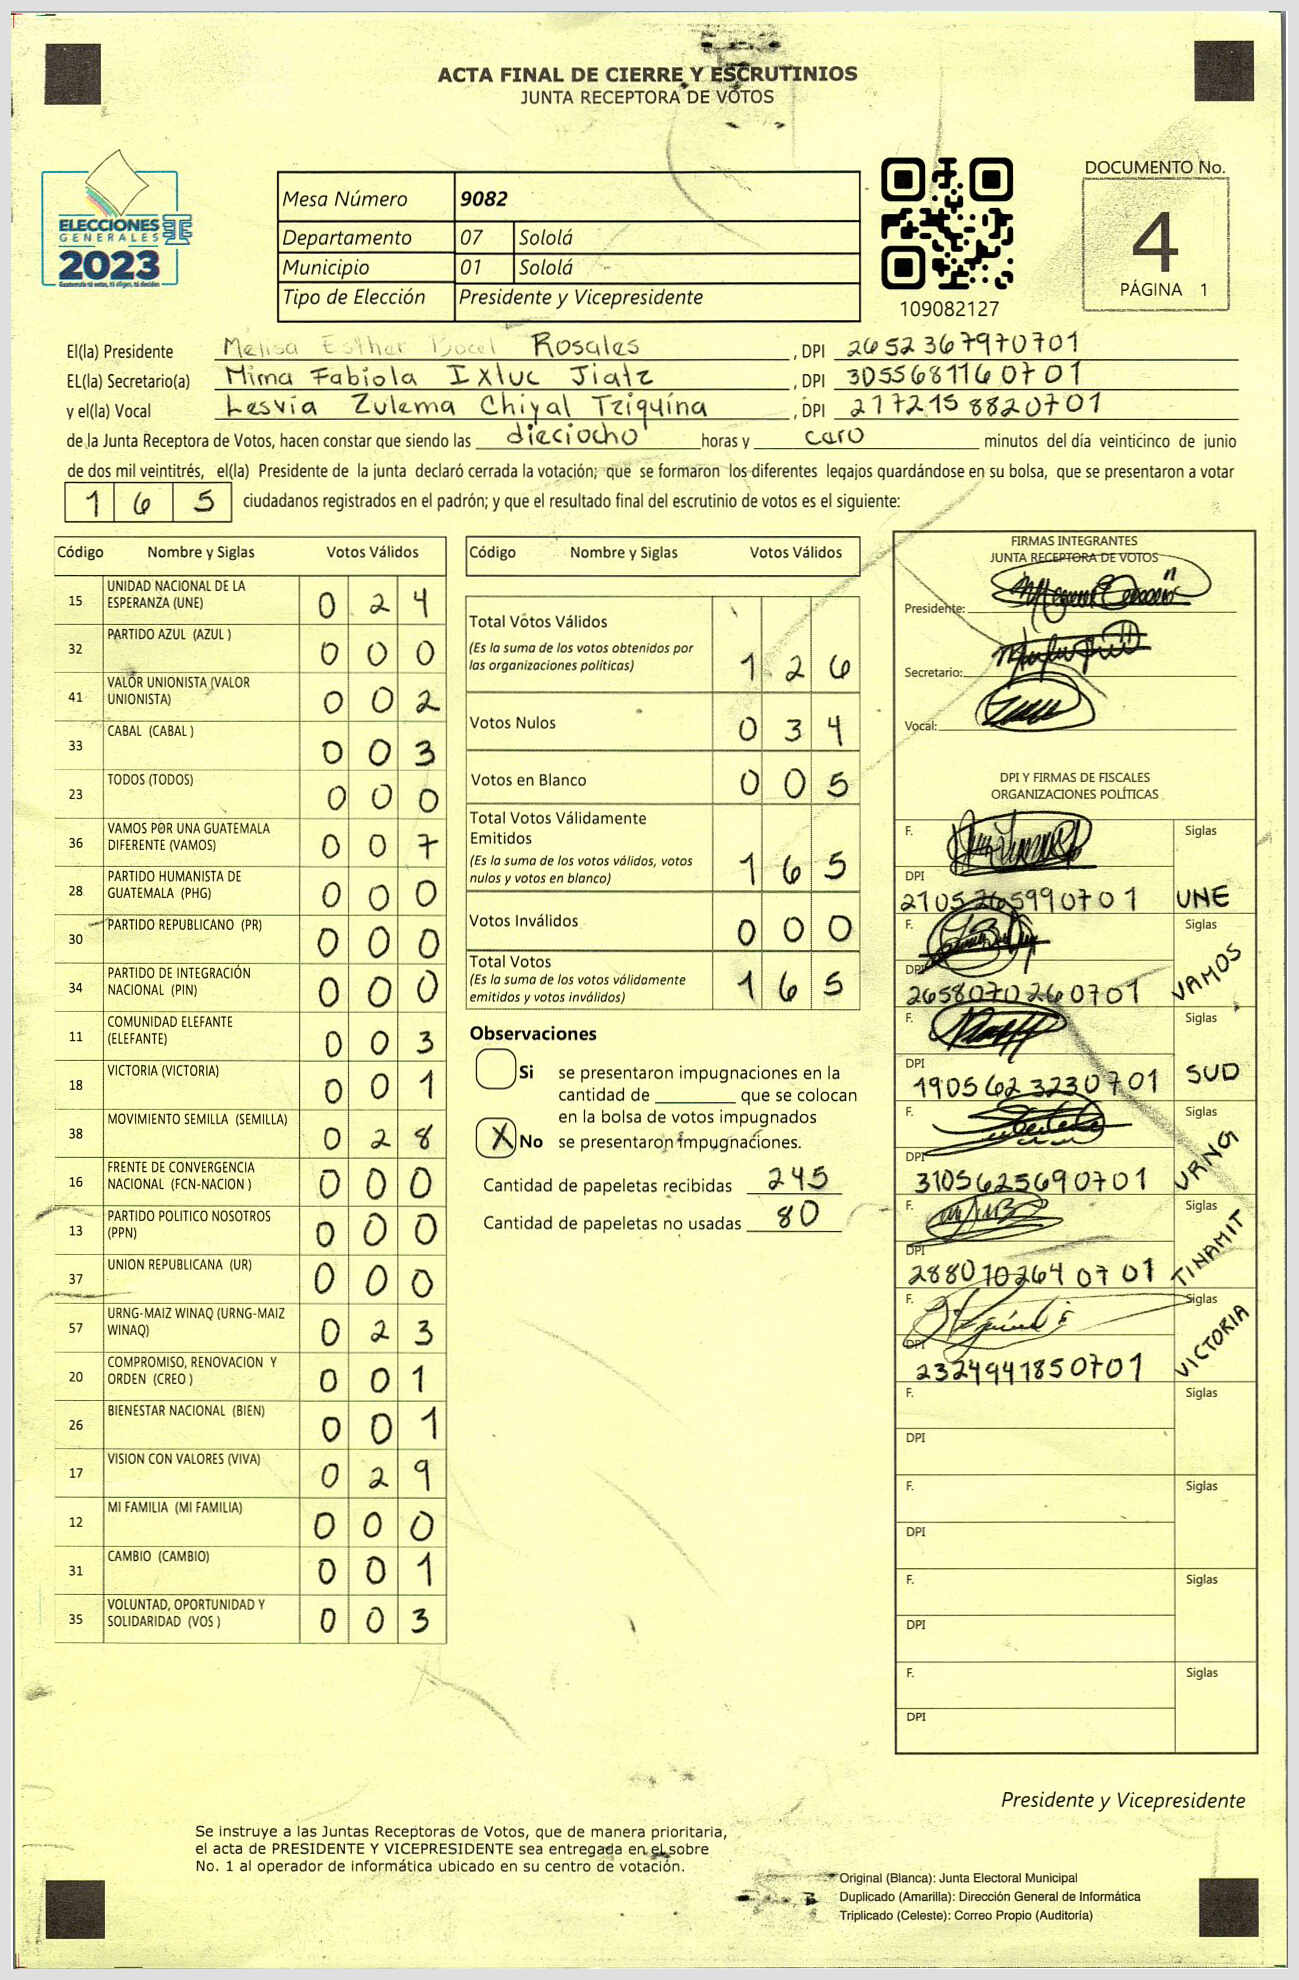 ACTA FINAL DE CIERRE Y ESCRUTINIOS
JUNTA RECEPTORA DE VOTOS
ELECCIONES
GENERALES
2023
Guatemala tú votas, tú eliges, tú decides
Mesa Número 9082
Departamento 07 Sololá
Municipio 01 Sololá
Tipo de Elección Presidente y Vicepresidente
109082127
DOCUMENTO No.
4
PÁGINA 1
El(la) Presidente Melisa Esther Bocel Rosales, DPI 2652367970701
EL(la) Secretario(a) Mirna Fabiola Ixtuc Jiatz, DPI 3055681160701
y el(la) Vocal Lesvia Zulema Chiyal Tziquina, DPI 2172158820701
de la Junta Receptora de Votos, hacen constar que siendo las dieciocho horas y cero minutos del día veinticinco de junio
de dos mil veintitrés, el(la) Presidente de la junta declaró cerrada la votación; que se formaron los diferentes legajos quardándose en su bolsa, que se presentaron a votar
165 ciudadanos registrados en el padrón; y que el resultado final del escrutinio de votos es el siguiente:
Código Nombre y Siglas Votos Válidos
15 UNIDAD NACIONAL DE LA ESPERANZA (UNE) 024
32 PARTIDO AZUL (AZUL ) 000
41 VALOR UNIONISTA (VALOR UNIONISTA) 002
33 CABAL (CABAL ) 003
23 TODOS (TODOS) 000
36 VAMOS POR UNA GUATEMALA DIFERENTE (VAMOS) 007
28 PARTIDO HUMANISTA DE GUATEMALA (PHG) 000
30 PARTIDO REPUBLICANO (PR) 000
34 PARTIDO DE INTEGRACIÓN NACIONAL (PIN) 000
11 COMUNIDAD ELEFANTE (ELEFANTE) 003
18 VICTORIA (VICTORIA) 001
38 MOVIMIENTO SEMILLA (SEMILLA) 028
16 FRENTE DE CONVERGENCIA NACIONAL (FCN-NACION ) 000
13 PARTIDO POLITICO NOSOTROS (PPN) 000
37 UNION REPUBLICANA (UR) 000
57 URNG-MAIZ WINAQ (URNG-MAIZ WINAQ) 023
20 COMPROMISO, RENOVACION Y ORDEN (CREO ) 001
26 BIENESTAR NACIONAL (BIEN) 001
17 VISION CON VALORES (VIVA) 029
12 MI FAMILIA (MI FAMILIA) 000
31 CAMBIO (CAMBIO) 001
35 VOLUNTAD, OPORTUNIDAD Y SOLIDARIDAD (VOS ) 003
Código Nombre y Siglas Votos Válidos
Total Vótos Válidos
(Es la suma de los votos obtenidos por
las organizaciones políticas) 126
Votos Nulos 034
Votos en Blanco 005
Total Votos Válidamente
Emitidos
(Es la suma de los votos válidos, votos
nulos y votos en blanco) 165
Votos Inválidos 000
Total Votos
(Es la suma de los votos válidamente
emitidos y votos inválidos) 165
Observaciones
Si se presentaron impugnaciones en la
cantidad de ________ que se colocan
en la bolsa de votos impugnados
X No se presentaron impugnaciones.
Cantidad de papeletas recibidas 245
Cantidad de papeletas no usadas 80
FIRMAS INTEGRANTES
JUNTA RECEPTORA DE VOTOS
Presidente:
Secretario:
Vocal:
DPI Y FIRMAS DE FISCALES
ORGANIZACIONES POLÍTICAS
F. Siglas
DPI 2105265990701 UNE
F. Siglas
DPI 2658070260701 VAMOS
F. Siglas
DPI 1905623230701 SUD
F. Siglas
DPI 3105625690701 URNG
F. Siglas
DPI 2880702640701 TINAMIT
F. Siglas
DPI 2324941850701 VICTORIA
F. Siglas
DPI
F. Siglas
DPI
F. Siglas
DPI
F. Siglas
DPI
Presidente y Vicepresidente
Se instruye a las Juntas Receptoras de Votos, que de manera prioritaria,
el acta de PRESIDENTE Y VICEPRESIDENTE sea entregada en el sobre
No. 1 al operador de informática ubicado en su centro de votación.
Original (Blanca): Junta Electoral Municipal
Duplicado (Amarilla): Dirección General de Informática
Triplicado (Celeste): Correo Propio (Auditoría)